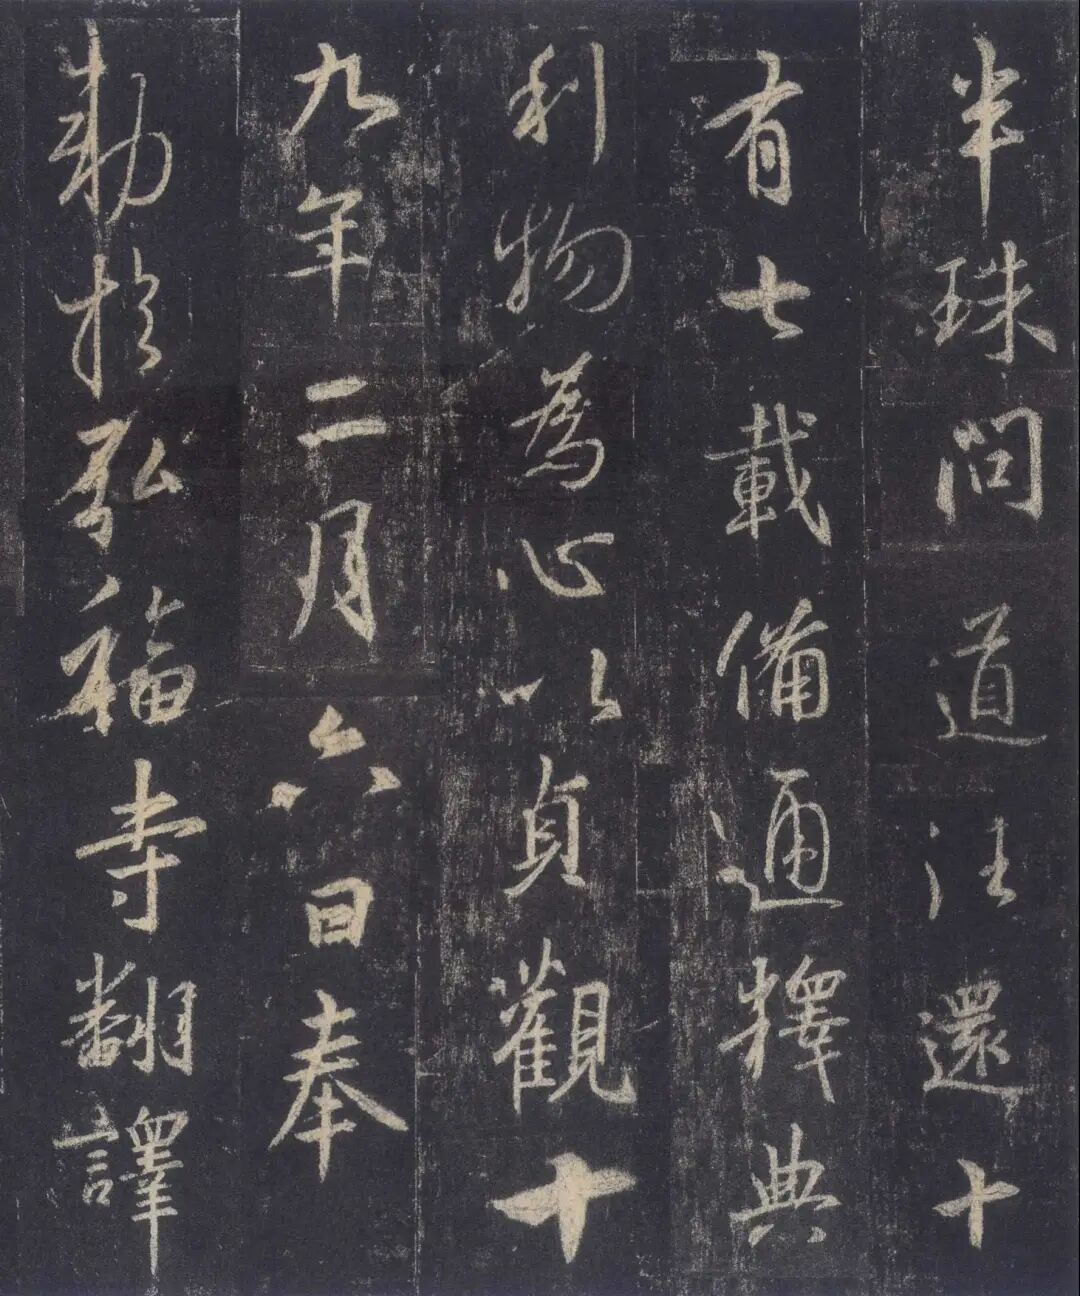 半珠問道注還十
有七載備通釋典
利物為心以貞觀十
九年二月六日奉
勅於弘福寺翻譯